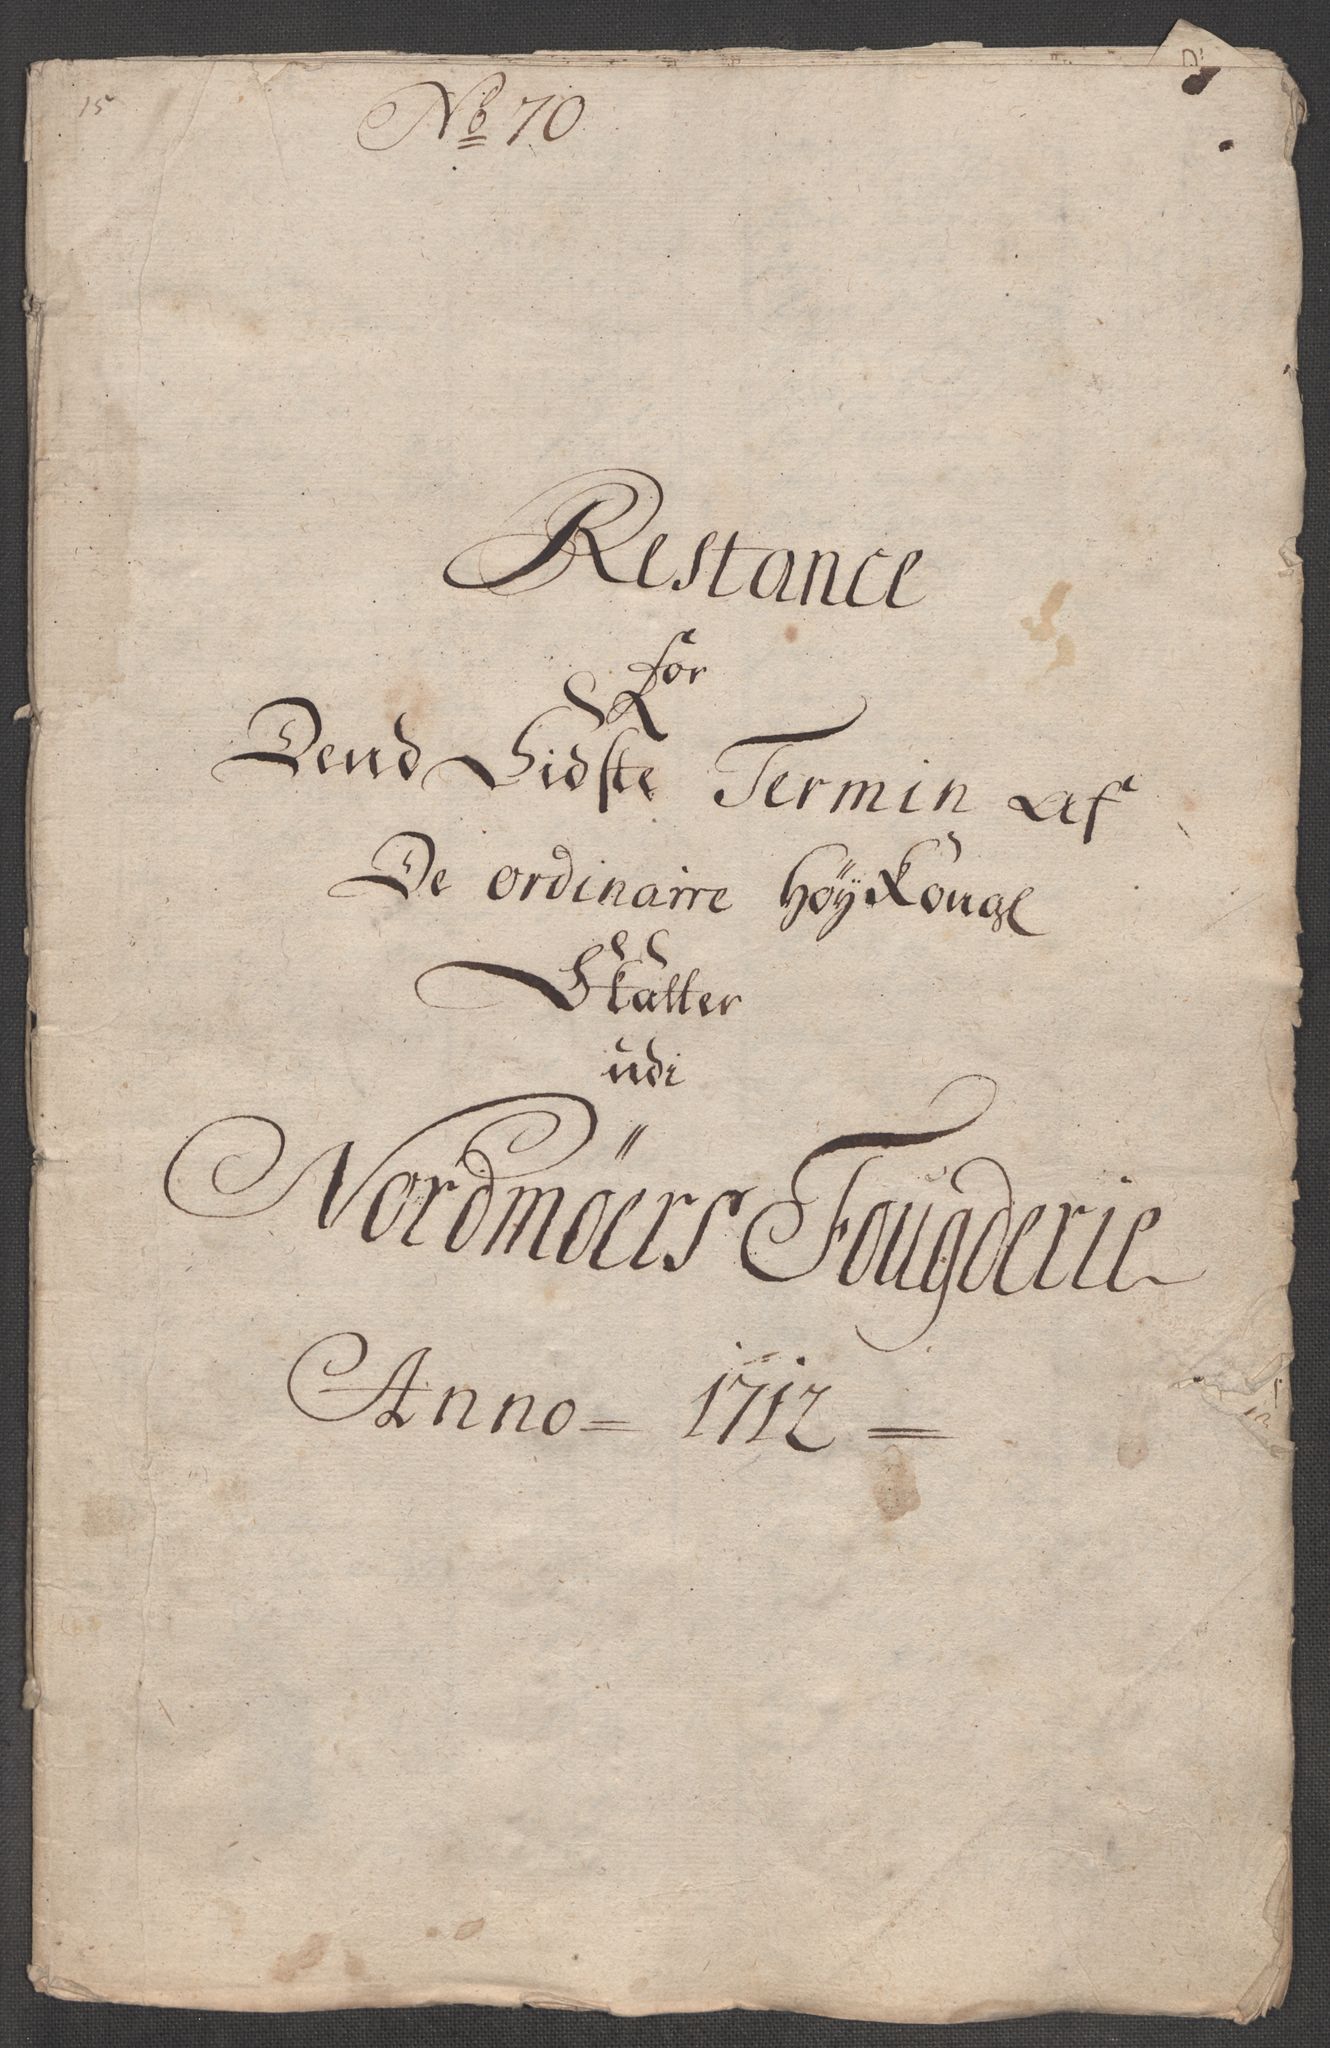 15
No 70
Restance
for
Dend Sidste Termin af
De ordinairre höÿ Kongl
Skatter
udi
Nordmöers Fougderie
Anno = 1712 =